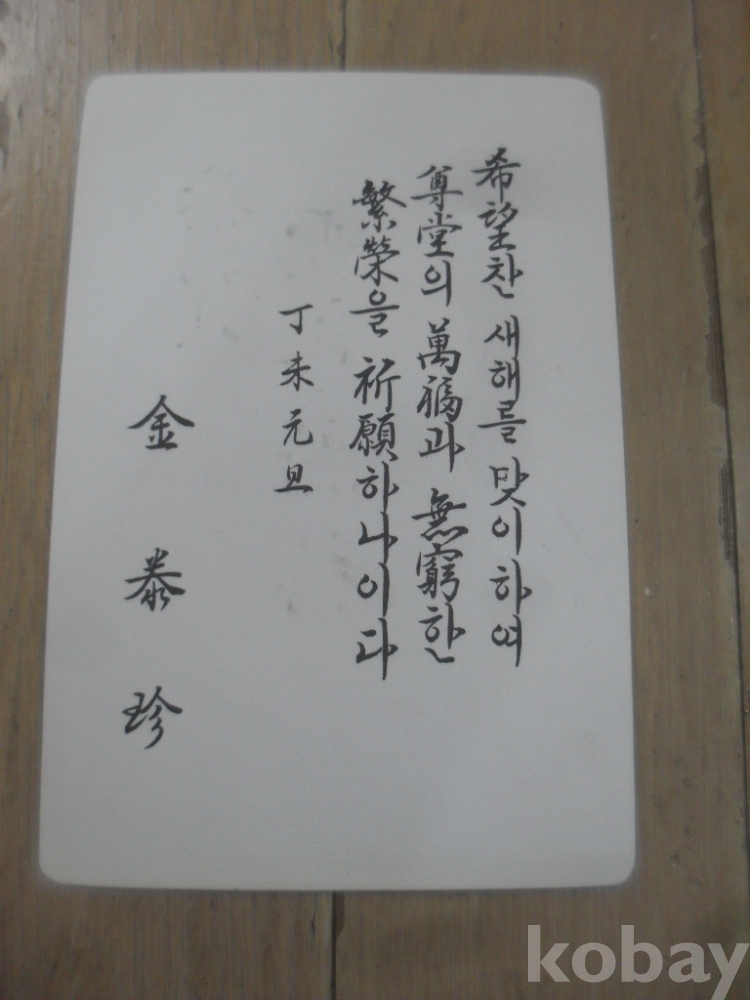 希望찬 새해를 맞이하여
尊堂의 萬福과 無窮한
繁榮을 祈願하나이다
丁未元旦
金泰珍
kobay